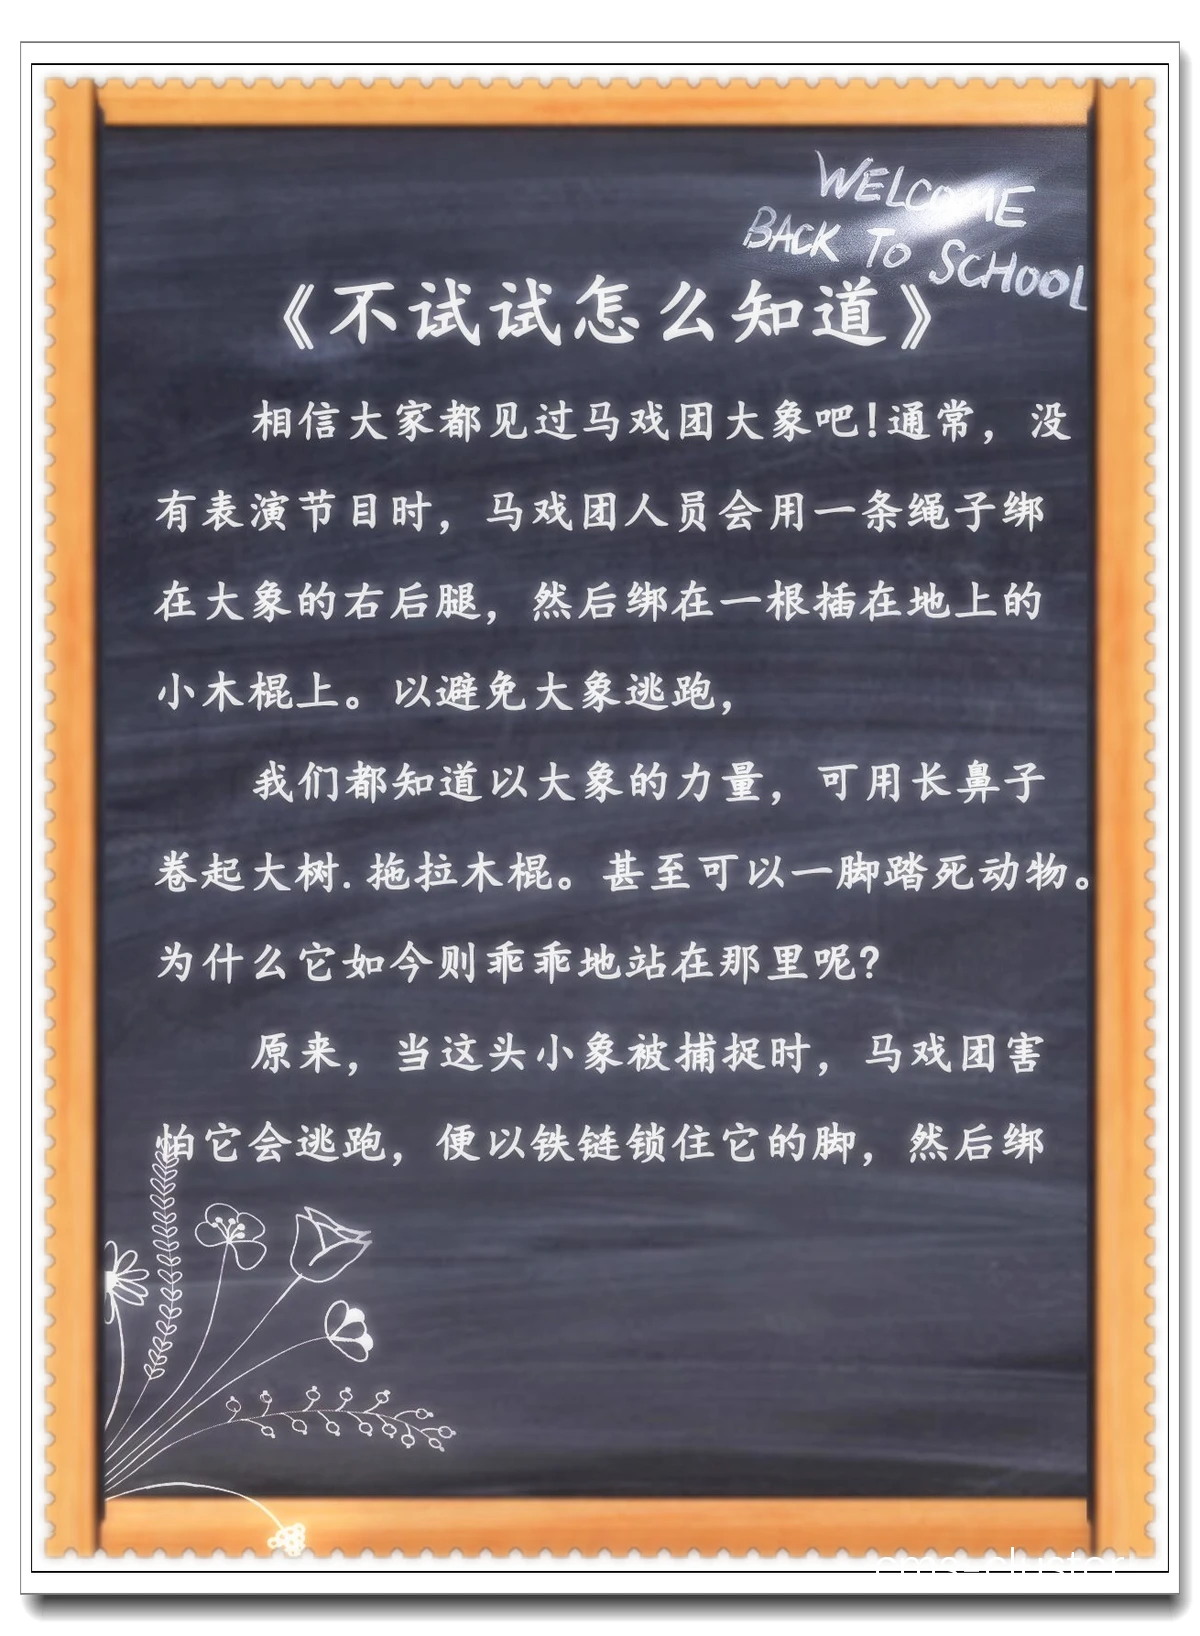 WELCOME
BACK TO SCHOOL
《不试试怎么知道》
相信大家都见过马戏团大象吧!通常，没
有表演节目时，马戏团人员会用一条绳子绑
在大象的右后腿，然后绑在一根插在地上的
小木棍上。以避免大象逃跑，
我们都知道以大象的力量，可用长鼻子
卷起大树.拖拉木棍。甚至可以一脚踏死动物。
为什么它如今则乖乖地站在那里呢?
原来，当这头小象被捕捉时，马戏团害
怕它会逃跑，便以铁链锁住它的脚，然后绑
cms-cluster